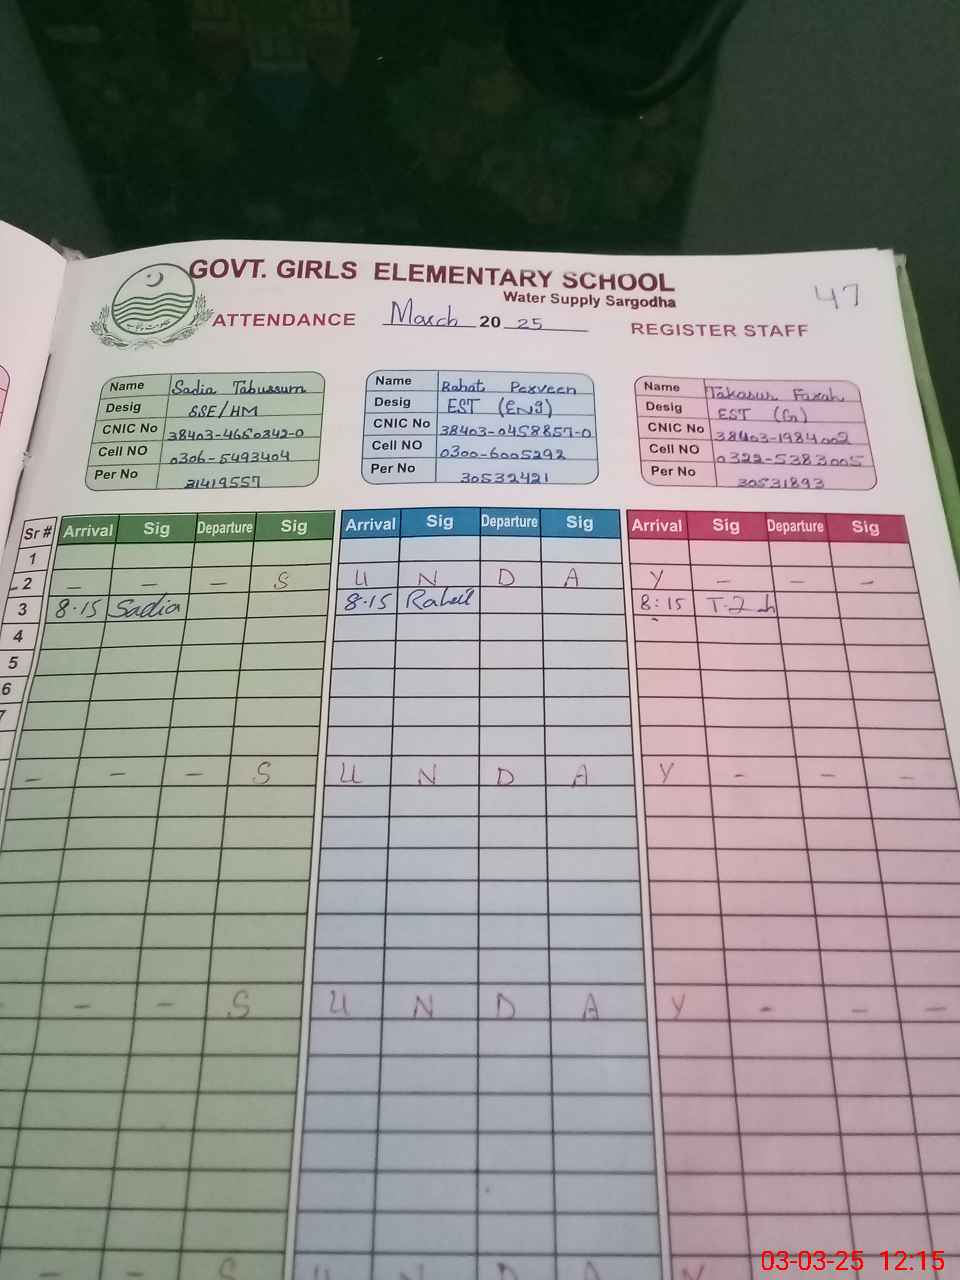 GOVT. GIRLS ELEMENTARY SCHOOL
Water Supply Sargodha
47
ATTENDANCE March 20 25 REGISTER STAFF
Name Sadia Tabussum
Desig SSE/HM
CNIC No 38403-4660342-0
Cell NO 0306-5493404
Per No 31419557
Name Rahat Perveen
Desig EST (Eng)
CNIC No 38403-0458857-0
Cell NO 0300-6005292
Per No 30532421
Name Takasur Farah
Desig EST (G)
CNIC No 38403-1984002
Cell NO 0322-5383005
Per No 30531893
Sr # Arrival Sig Departure Sig Arrival Sig Departure Sig Arrival Sig Departure Sig
1
2 - - - S U N D A Y - - -
3 8.15 Sadia 8.15 Rahat 8:15
4
5
6
7
- - - S U N D A Y - - -
- - S U N D A Y - - -
- - S U N D A Y
03-03-25 12:15